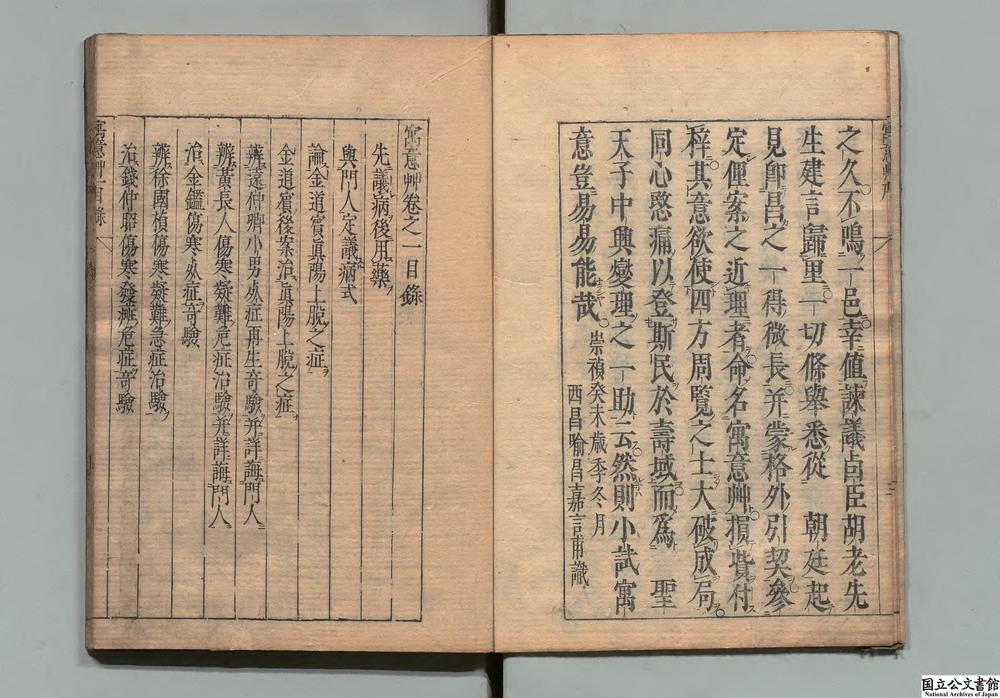 之久不鳴一邑幸值諫議卣臣胡老先
生建言歸里一切條舉悉從　朝廷起
見卽昌之一得微長并蒙格外引契參
定俚案之近理者命名寓意艸損貲付
梓其意欲使四方周覽之士大破成局
同心愍痛以登斯民於壽域而爲　聖
天子中興燮理之一助云然則小試寓
意豈易易能哉
崇禎癸未歲季冬月
西昌喻昌嘉言甫識
寓意艸卷之一目錄
先議病後用藥
與門人定議病式
論金道賓眞陽上脫之症
金道賓後案治眞陽上脫之症
辨袁仲卿小男死症再生奇驗并詳誨門人
辨黃長人傷寒疑難危症治驗并詳誨門人
治金鑑傷寒死症奇驗
辨徐國禎傷寒疑難急症治驗
治錢仲昭傷寒發癍危症奇驗
寓意艸目錄
国立公文書館
National Archives of Japan